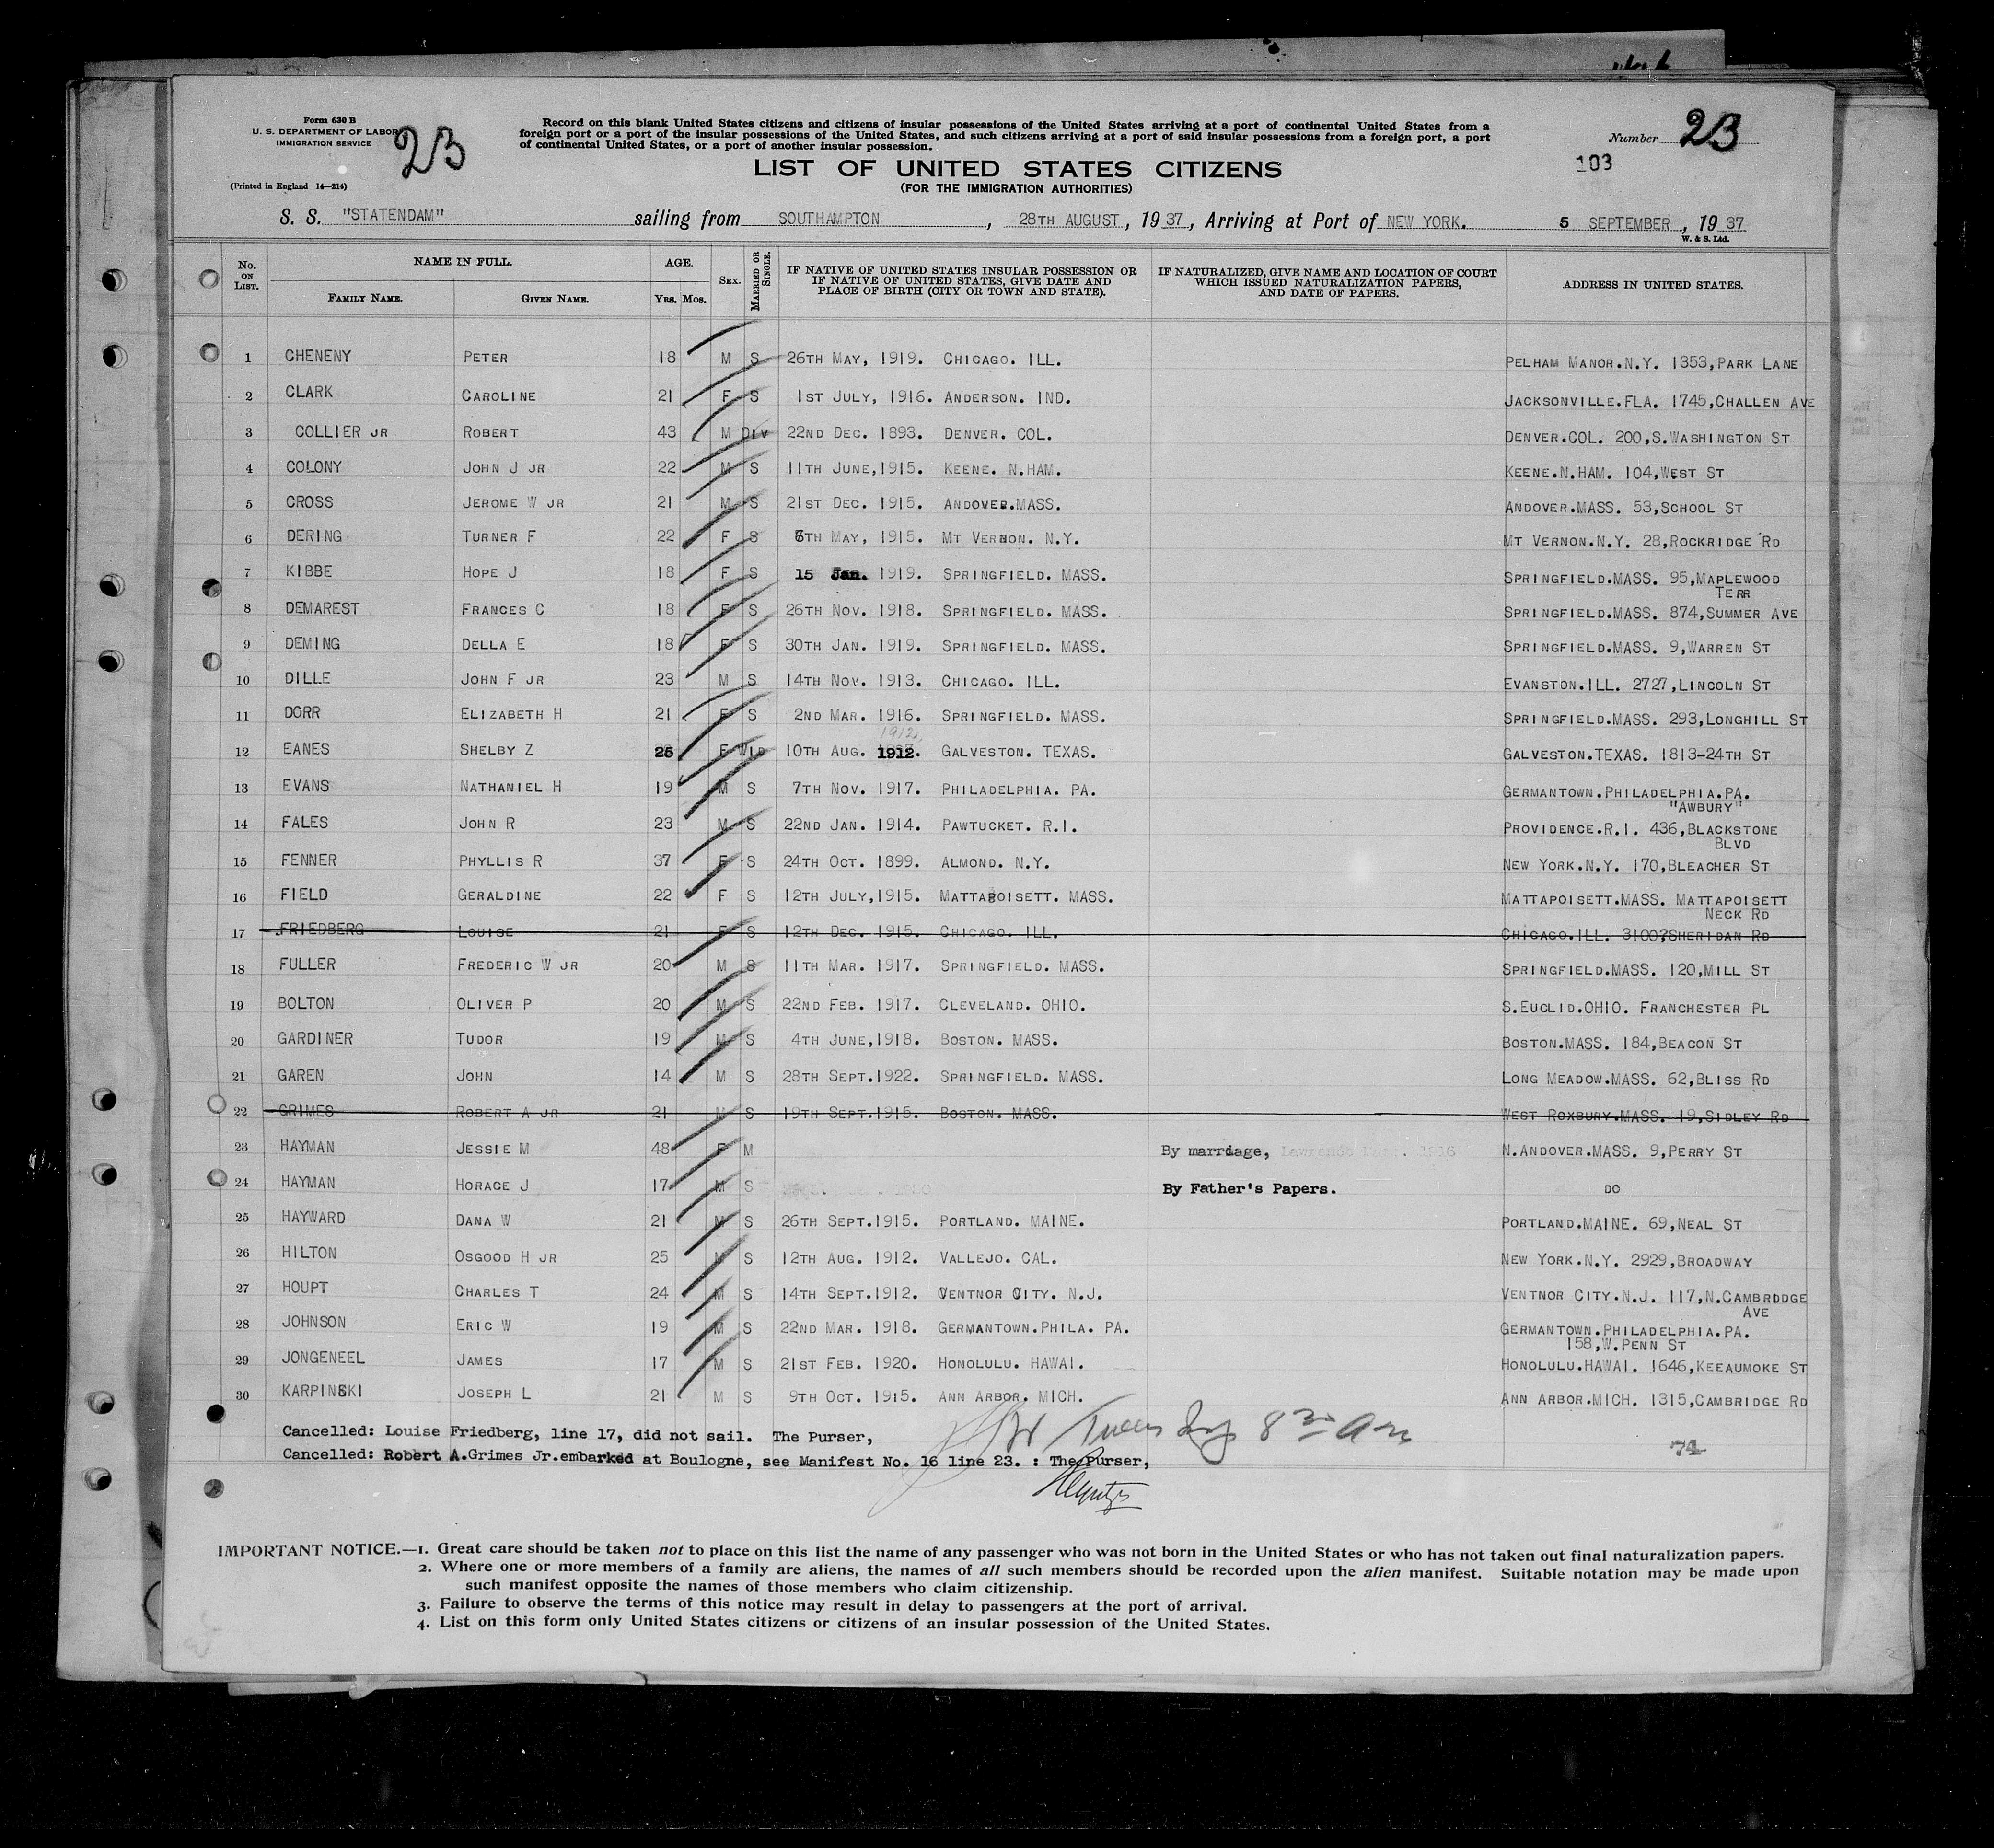 Form 630 B
U. S. DEPARTMENT OF LABOR
IMMIGRATION SERVICE
(Printed in England 14—214)
23
Record on this blank United States citizens and citizens of insular possessions of the United States arriving at a port of continental United States from a
foreign port or a port of the insular possessions of the United States, and such citizens arriving at a port of said insular possessions from a foreign port, a port
of continental United States, or a port of another insular possession.
Number 23
103
LIST OF UNITED STATES CITIZENS
(FOR THE IMMIGRATION AUTHORITIES)
S. S. "STATENDAM" sailing from SOUTHAMPTON, 28TH AUGUST, 1937, Arriving at Port of NEW YORK. 5 SEPTEMBER, 1937
W. & S. Ltd.
No. ON LIST. NAME IN FULL. FAMILY NAME. GIVEN NAME. AGE. YRS. MOS. SEX. MARRIED OR SINGLE. IF NATIVE OF UNITED STATES INSULAR POSSESSION OR IF NATIVE OF UNITED STATES, GIVE DATE AND PLACE OF BIRTH (CITY OR TOWN AND STATE). IF NATURALIZED, GIVE NAME AND LOCATION OF COURT WHICH ISSUED NATURALIZATION PAPERS, AND DATE OF PAPERS. ADDRESS IN UNITED STATES.
1 CHENENY PETER 18 M S 26TH MAY, 1919. CHICAGO. ILL. PELHAM MANOR.N.Y. 1353,PARK LANE
2 CLARK CAROLINE 21 F S 1ST JULY, 1916. ANDERSON. IND. JACKSONVILLE.FLA. 1745,CHALLEN AVE
3 COLLIER JR ROBERT 43 M DIV 22ND DEC. 1893. DENVER. COL. DENVER.COL. 200,S.WASHINGTON ST
4 COLONY JOHN J JR 22 M S 11TH JUNE,1915. KEENE. N.HAM. KEENE.N.HAM. 104,WEST ST
5 CROSS JEROME W JR 21 M S 21ST DEC. 1915. ANDOVER.MASS. ANDOVER.MASS. 53,SCHOOL ST
6 DERING TURNER F 22 F S TH MAY, 1915. MT VERNON. N.Y. MT VERNON.N.Y. 28,ROCKRIDGE RD
7 KIBBE HOPE J 18 F S 15 Jan. 1919. SPRINGFIELD. MASS. SPRINGFIELD.MASS. 95,MAPLEWOOD
TERR
8 DEMAREST FRANCES C 18 F S 26TH NOV. 1918. SPRINGFIELD. MASS. SPRINGFIELD.MASS. 874,SUMMER AVE
9 DEMING DELLA E 18 F S 30TH JAN. 1919. SPRINGFIELD. MASS. SPRINGFIELD.MASS. 9,WARREN ST
10 DILLE JOHN F JR 23 M S 14TH NOV. 1913. CHICAGO. ILL. EVANSTON.ILL. 2727,LINCOLN ST
11 DORR ELIZABETH H 21 F S 2ND MAR. 1916. SPRINGFIELD. MASS. SPRINGFIELD.MASS. 293,LONGHILL ST
1912,
12 EANES SHELBY Z 25 F WID 10TH AUG. 1912. GALVESTON. TEXAS. GALVESTON.TEXAS. 1813-24TH ST
13 EVANS NATHANIEL H 19 M S 7TH NOV. 1917. PHILADELPHIA. PA. GERMANTOWN.PHILADELPHIA.PA.
"AWBURY"
14 FALES JOHN R 23 M S 22ND JAN. 1914. PAWTUCKET. R.I. PROVIDENCE.R.I. 436,BLACKSTONE
BLVD
15 FENNER PHYLLIS R 37 F S 24TH OCT. 1899. ALMOND. N.Y. NEW YORK.N.Y. 170,BLEACHER ST
16 FIELD GERALDINE 22 F S 12TH JULY,1915. MATTAPOISETT. MASS. MATTAPOISETT.MASS. MATTAPOISETT
NECK RD
17 FRIEDBERG LOUISE 21 F S 12TH DEC. 1915. CHICAGO. ILL. CHICAGO.ILL. 3100?SHERIDAN RD
18 FULLER FREDERIC W JR 20 M S 11TH MAR. 1917. SPRINGFIELD. MASS. SPRINGFIELD.MASS. 120,MILL ST
19 BOLTON OLIVER P 20 M S 22ND FEB. 1917. CLEVELAND. OHIO. S.EUCLID.OHIO. FRANCHESTER PL
20 GARDINER TUDOR 19 M S 4TH JUNE,1918. BOSTON. MASS. BOSTON.MASS. 184,BEACON ST
21 GAREN JOHN 14 M S 28TH SEPT.1922. SPRINGFIELD. MASS. LONG MEADOW.MASS. 62,BLISS RD
22 GRIMES ROBERT A JR 21 M S 19TH SEPT.1915. BOSTON. MASS. WEST ROXBURY.MASS. 19,SIDLEY RD
23 HAYMAN JESSIE M 48 F M By marriage, N.ANDOVER.MASS. 9,PERRY ST
24 HAYMAN HORACE J 17 M S By Father's Papers. DO
25 HAYWARD DANA W 21 M S 26TH SEPT.1915. PORTLAND. MAINE. PORTLAND.MAINE. 69,NEAL ST
26 HILTON OSGOOD H JR 25 M S 12TH AUG. 1912. VALLEJO. CAL. NEW YORK.N.Y. 2929,BROADWAY
27 HOUPT CHARLES T 24 M S 14TH SEPT.1912. VENTNOR CITY. N.J. VENTNOR CITY.N.J. 117,N.CAMBRDDGE
AVE
28 JOHNSON ERIC W 19 M S 22ND MAR. 1918. GERMANTOWN.PHILA. PA. GERMANTOWN.PHILADELPHIA.PA.
158,W.PENN ST
29 JONGENEEL JAMES 17 M S 21ST FEB. 1920. HONOLULU. HAWAI. HONOLULU.HAWAI. 1646,KEEAUMOKE ST
30 KARPINSKI JOSEPH L 21 M S 9TH OCT. 1915. ANN ARBOR. MICH. ANN ARBOR.MICH. 1315,CAMBRIDGE RD
Cancelled: Louise Friedberg, line 17, did not sail. The Purser,
Cancelled: Robert A.Grimes Jr.embarked at Boulogne, see Manifest No. 16 line 23. : The Purser,
74
IMPORTANT NOTICE.—1. Great care should be taken not to place on this list the name of any passenger who was not born in the United States or who has not taken out final naturalization papers.
2. Where one or more members of a family are aliens, the names of all such members should be recorded upon the alien manifest. Suitable notation may be made upon
such manifest opposite the names of those members who claim citizenship.
3. Failure to observe the terms of this notice may result in delay to passengers at the port of arrival.
4. List on this form only United States citizens or citizens of an insular possession of the United States.